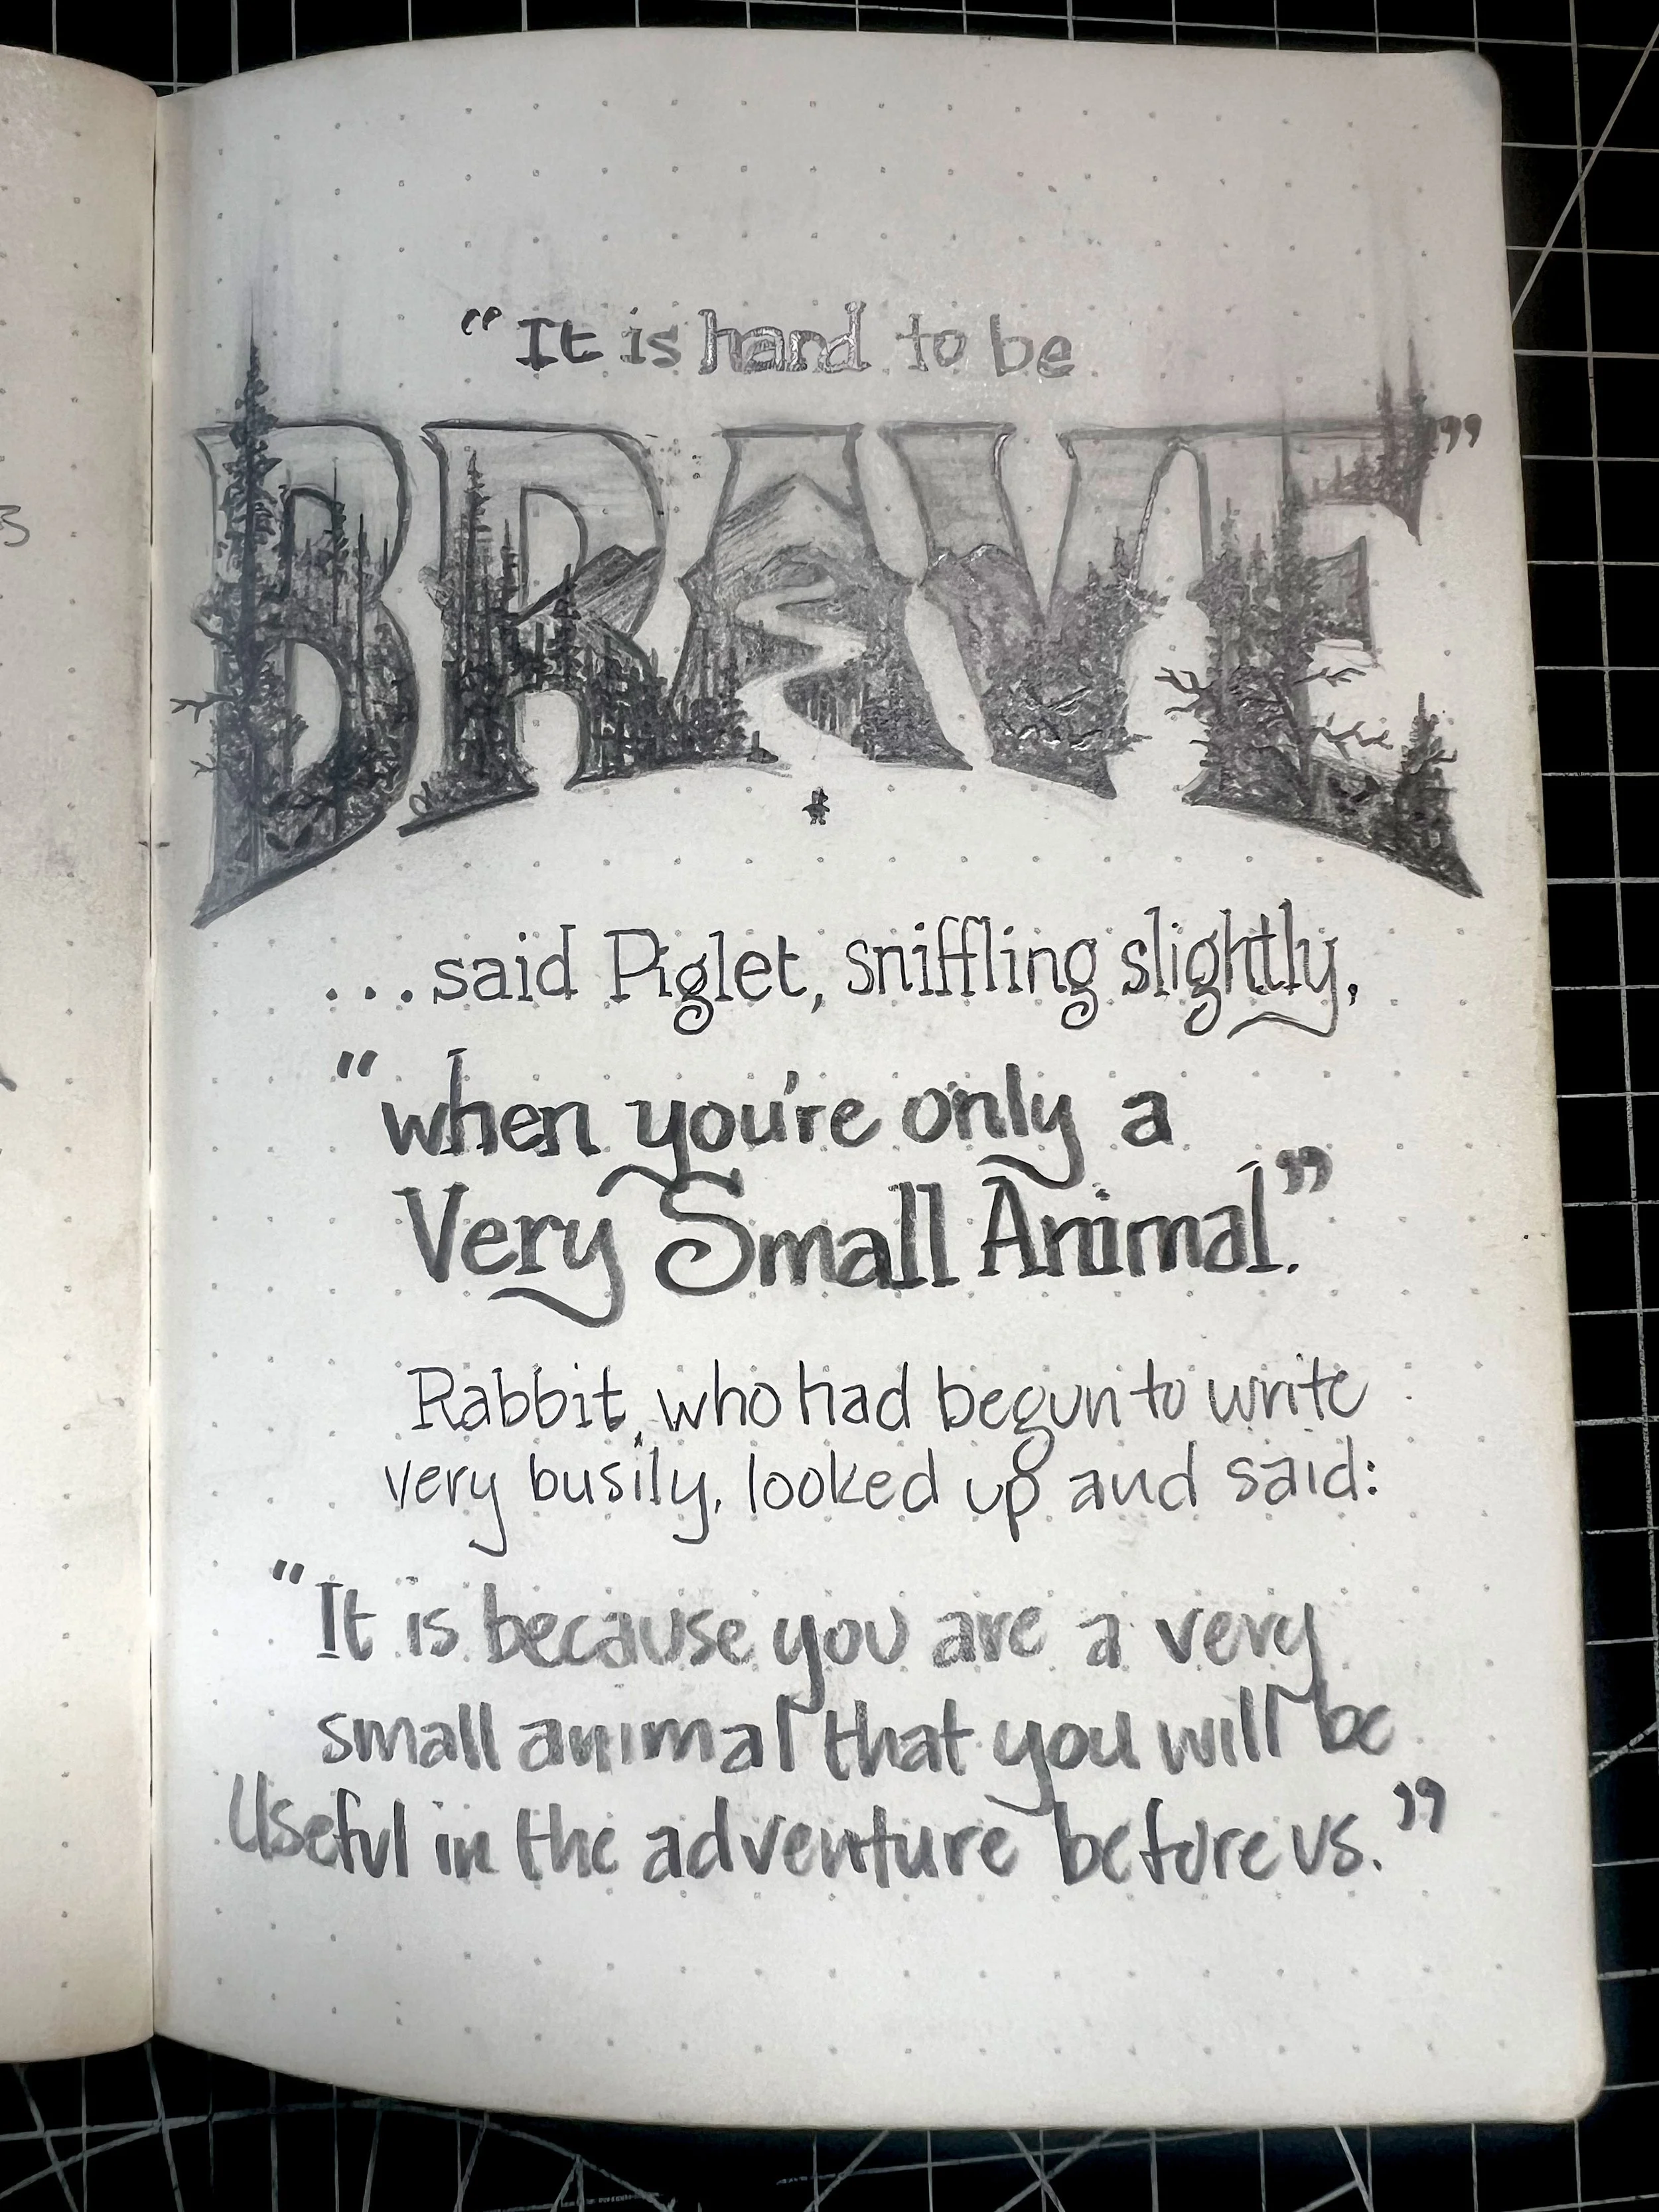 “It is hard to be
BRAVE”
...said Piglet, sniffling slightly,
“when you're only a
Very Small Animal.”
Rabbit, who had begun to write
very busily, looked up and said:
“It is because you are a very
small animal that you will be
Useful in the adventure before us.”
3